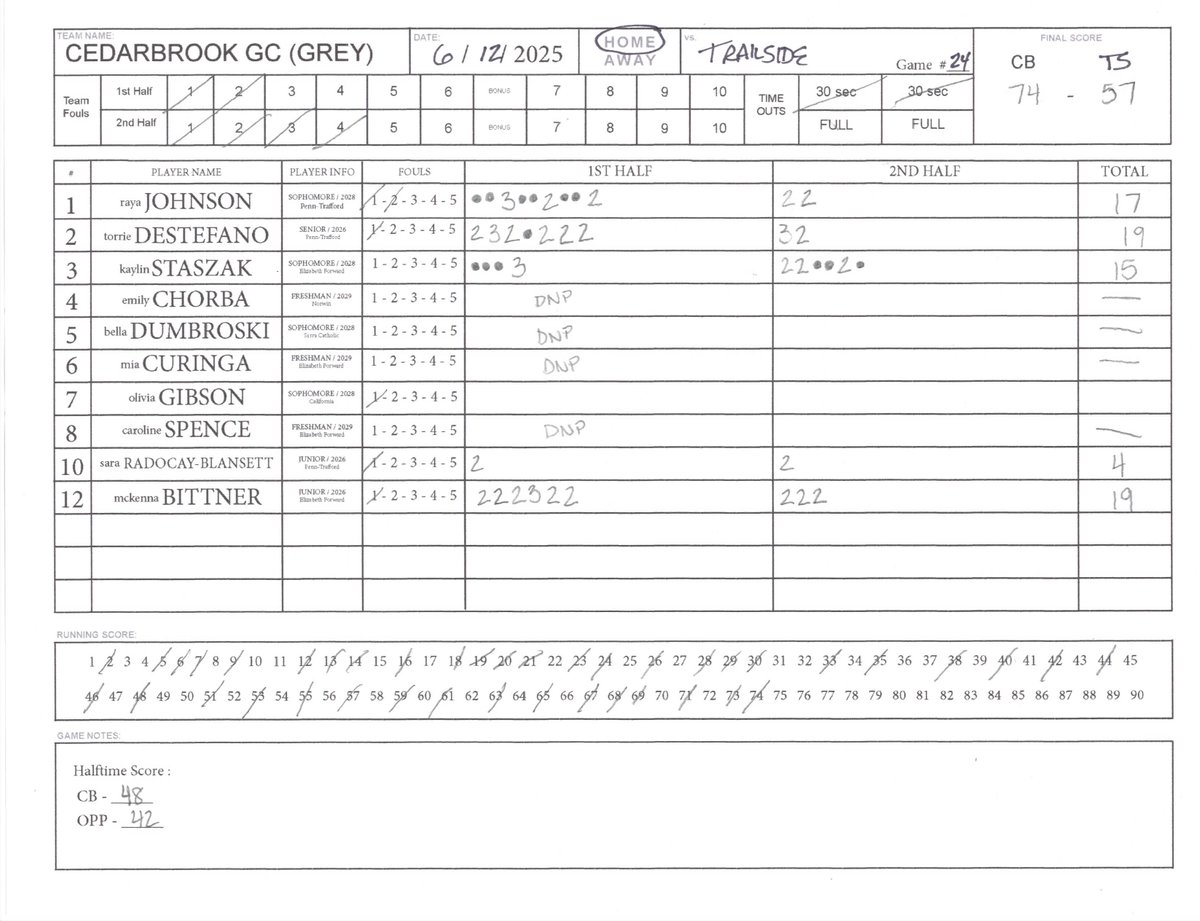 TEAM NAME: DATE: HOME vs. FINAL SCORE
CEDARBROOK GC (GREY) 6 / 12 / 2025 AWAY TRAILSIDE Game # 24 CB TS
74 - 57
Team Fouls 1st Half 1 2 3 4 5 6 BONUS 7 8 9 10 TIME OUTS 30 sec 30 sec
2nd Half 1 2 3 4 5 6 BONUS 7 8 9 10 FULL FULL
# PLAYER NAME PLAYER INFO FOULS 1ST HALF 2ND HALF TOTAL
1 raya JOHNSON SOPHOMORE / 2028 Penn-Trafford 1 - 2 - 3 - 4 - 5 ••3••2••2 22 17
2 torrie DESTEFANO SENIOR / 2026 Penn-Trafford 1 - 2 - 3 - 4 - 5 232•222 32 19
3 kaylin STASZAK SOPHOMORE / 2028 Elizabeth Forward 1 - 2 - 3 - 4 - 5 •••3 22••2• 15
4 emily CHORBA FRESHMAN / 2029 Norwin 1 - 2 - 3 - 4 - 5 DNP —
5 bella DUMBROSKI SOPHOMORE / 2028 Serra Catholic 1 - 2 - 3 - 4 - 5 DNP —
6 mia CURINGA FRESHMAN / 2029 Elizabeth Forward 1 - 2 - 3 - 4 - 5 DNP —
7 olivia GIBSON SOPHOMORE / 2028 California 1 - 2 - 3 - 4 - 5
8 caroline SPENCE FRESHMAN / 2029 Elizabeth Forward 1 - 2 - 3 - 4 - 5 DNP —
10 sara RADOCAY-BLANSETT JUNIOR / 2026 Penn-Trafford 1 - 2 - 3 - 4 - 5 2 2 4
12 mckenna BITTNER JUNIOR / 2026 Elizabeth Forward 1 - 2 - 3 - 4 - 5 222322 222 19
RUNNING SCORE:
1 2 3 4 5 6 7 8 9 10 11 12 13 14 15 16 17 18 19 20 21 22 23 24 25 26 27 28 29 30 31 32 33 34 35 36 37 38 39 40 41 42 43 44 45
46 47 48 49 50 51 52 53 54 55 56 57 58 59 60 61 62 63 64 65 66 67 68 69 70 71 72 73 74 75 76 77 78 79 80 81 82 83 84 85 86 87 88 89 90
GAME NOTES:
Halftime Score :
CB - 48
OPP - 42